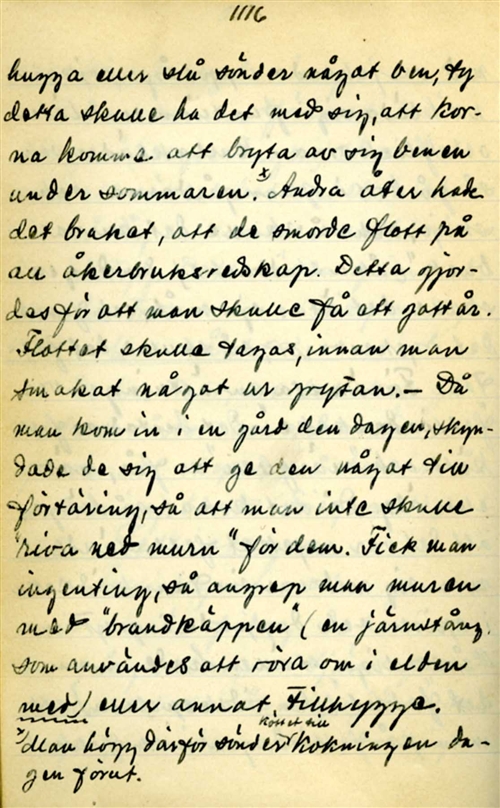 1116
hugga eller slå sönder något ben, ty
detta skulle ha det med sig, att kor-
na komme att bryta av sig benen
under sommaren.x Andra åter hade
det bruket, att de smorde flott på
all åkerbruksredskap. Detta gjor-
des för att man skulle få ett gott år.
Flottet skulle tagas, innan man
smakat något ur grytan. – Då
man kom in i en gård den dagen, skyn-
dade de sig att ge den något till
förtäring, så att man inte skulle
"riva ned muren" för dem. Fick man
ingenting, så angrep man muren
med "brandkäppen" (en järnstång,
som användes att röra om i elden
med) eller annat tillhygge.
x) Man högg därför sönder köttet till kokningen da-
gen förut.